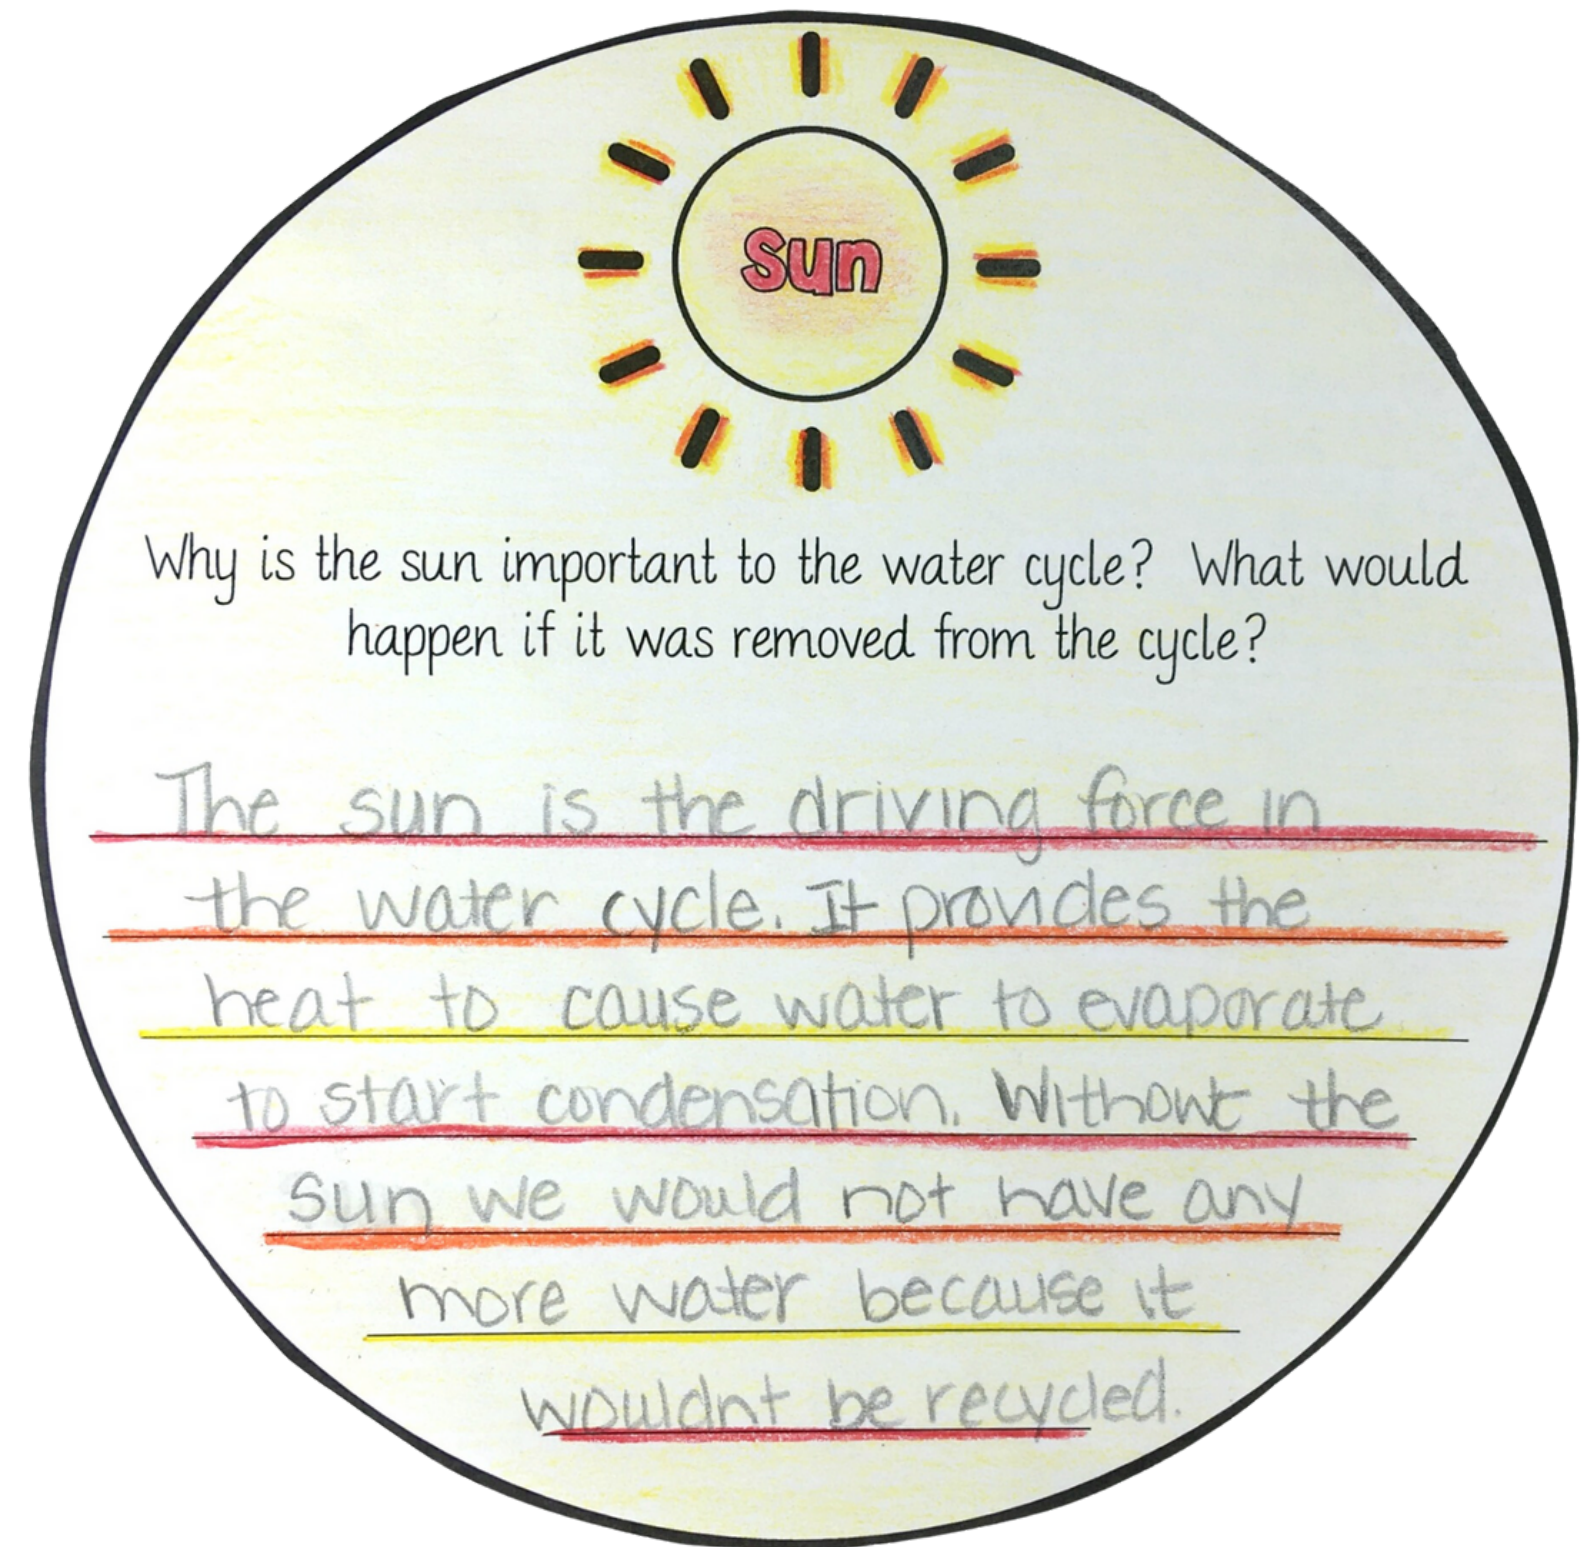 sun
Why is the sun important to the water cycle? What would
happen if it was removed from the cycle?
The sun is the driving force in
the water cycle. It provides the
heat to cause water to evaporate
to start condensation. Without the
sun we would not have any
more water because it
wouldnt be recycled.